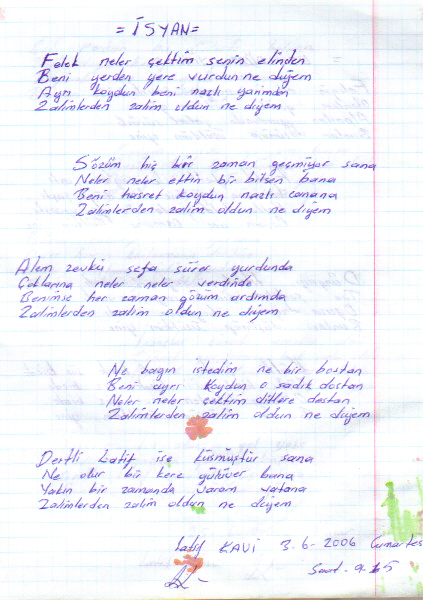 = İSYAN =
Felek neler çektim senin elinden
Beni yerden yere vurdun ne diyem
Ayrı koydun beni nazlı yarimden
Zalimlerden zalim oldun ne diyem
Sözüm hiç bir zaman geçmiyor sana
Neler neler ettin bir bilsen bana
Beni hasret koydun nazlı canana
Zalimlerden zalim oldun ne diyem
Alem zevkü sefa sürer yurdunda
Çoklarına neler neler verdinde
Benimse her zaman gözüm ardımda
Zalimlerden zalim oldun ne diyem
Ne bağın istedim ne bir bostan
Beni ayrı koydun o sadık dostan
Neler neler çektim dillere destan
Zalimlerden zalim oldun ne diyem
Dertli Latif ise küsmüştür sana
Ne olur bir kere gülüver bana
Yakın bir zamanda varam vatana
Zalimlerden zalim oldun ne diyem
Latif KAVİ 3.6-2006 Cumartesi
Saat. 9.15